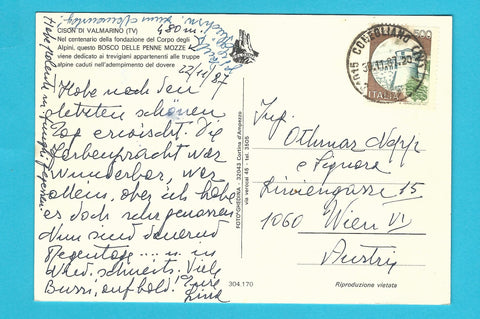 CISON DI VALMARINO (TV)
Nel centenario della fondazione del Corpo degli
Alpini, questo BOSCO DELLE PENNE MOZZE
viene dedicato ai trevigiani appartenenti alle truppe
alpine caduti nell'adempimento del dovere
480m.
22/11/87
Habe noch den
letzten schönen
Tag erwischt. Die
Farbenpracht war
wunderbar, war
allein, aber ich habe
es doch sehr genossen
Nun sind dauernd
Regentage .... u. in
schneits. Viele
Bussi, auf bald! Eure
FOTO GHEDINA - 32043 Cortina d'Ampezzo
via verocai 45 - tel. 3505
304.170
CONEGLIANO (TV)
500
ITALIA
Othmar
e Signora
15
1060 Wien VI
Austria
Riproduzione vietata